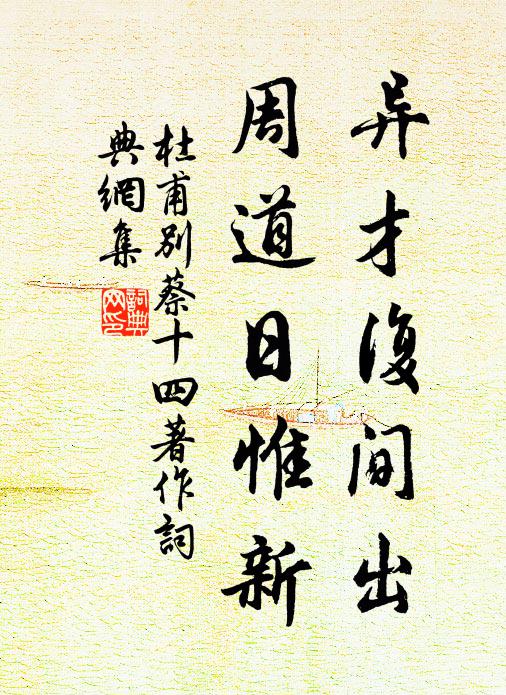 异才復間出
周道日惟新
杜甫別蔡十四著作詞
典網集
詞典網印